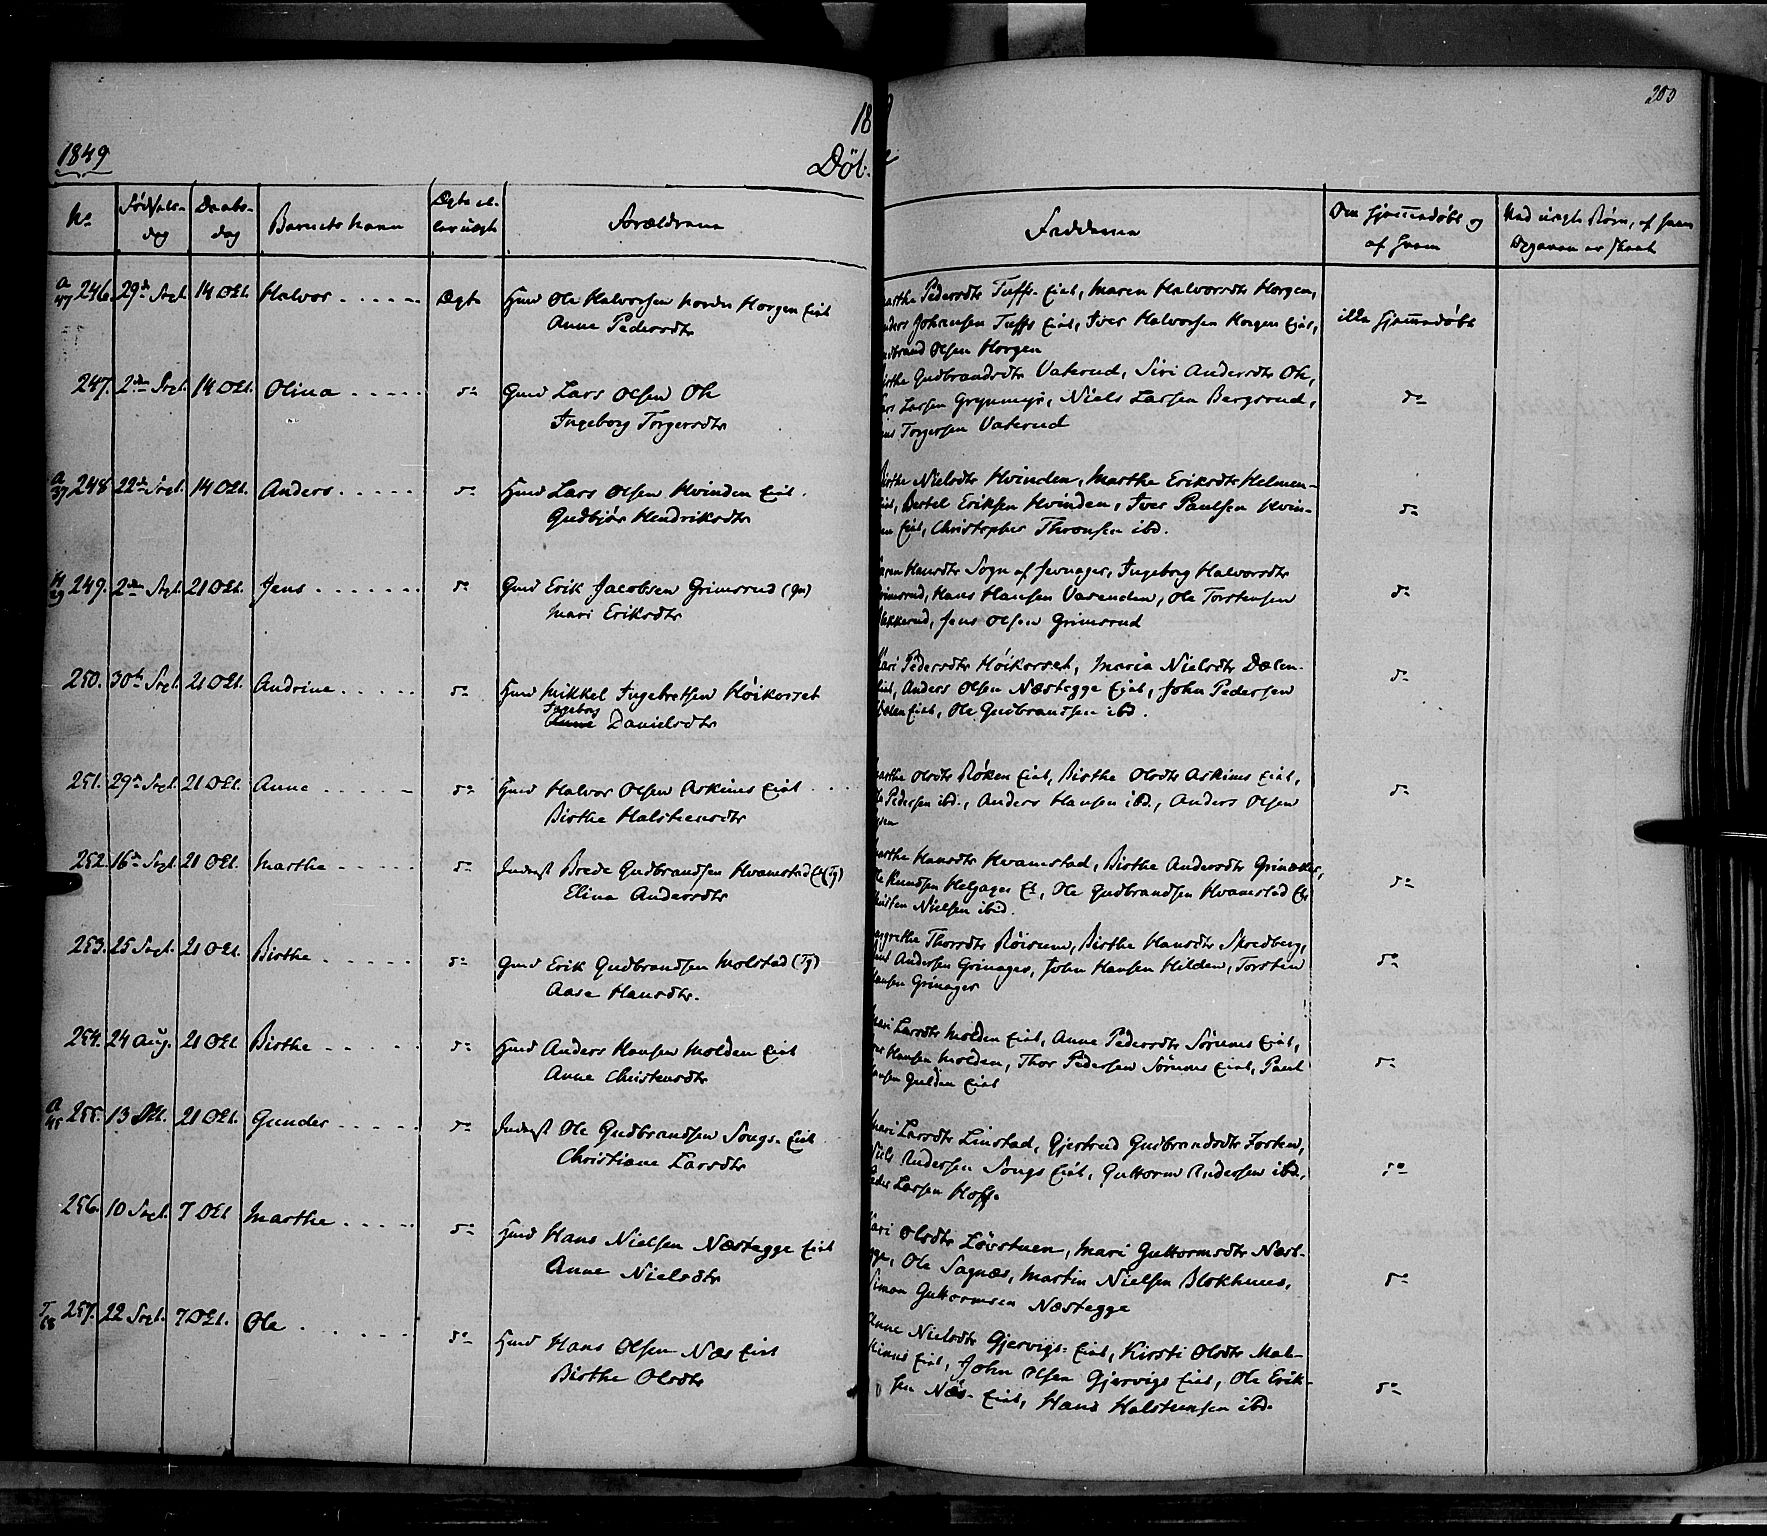 203
18
1849
Døb.
No
Fødsels-
dag
Daabs-
dag
Barnets Navn
Ægte el-
ler uægte
Forældrene
Fadderne
Om hjemmedøbt og
af hvem
Ved uægte Børn, af hvem
Opgaven er skeet
246. 29de Sept. 14 Oct. Halvor Ægte Hmd Ole Halvorsen nordre Horgen Eiet
Anne Pedersdtr
Marthe Pedersdtr Tuffs-Eiet, Maren Halvorsdtr Horgen,
Anders Johansen Tuffs Eiet, Iver Halvorsen Horgen Eiet,
Gudbrand Olsen Horgen
ikke hjemmedøbt
247. 2den Sept. 14 Oct. Olina do Gmd Lars Olsen Ok
Ingeborg Torgersdtr
Birthe Gudbrandsdtr Vaterud, Siri Andersdtr Ok,
Lars Larsen Grynmyr, Niels Larsen Bergsrud,
Torgersen Vaterud
do
A
37 248 22de Sept. 14 Oct. Anders do Hmd Lars Olsen Hvinden Eiet.
Gudbjør Hendriksdtr
Birthe Nielsdtr Hvinden, Marthe Eriksdtr Helmen-
Eiet, Bertel Eriksen Hvinden, Iver Paulsen Hvin-
den Eiet, Christopher Thronsen ibd.
do
249. 2den Sept. 21 Oct. Jens do Gmd Erik Jacobsen Grimsrud (Gn)
Mari Eriksdtr
Karen Hansdtr Sogn af Jevnager, Ingeborg Halvorsdtr
Grimsrud, Hans Hansen Vasenden, Ole Torstensen
Bakkerud, Jens Olsen Grimsrud
do
250. 30te Sept. 21 Oct. Andrine do Hmd Mikkel Ingebretsen Høikorset
Ingeborg
Anne Danielsdtr
Kari Pedersdtr Høikorset, Maria Nielsdtr Dælen-
Eiet, Anders Olsen Næstegge Eiet, John Pedersen
Dælen Eiet, Ole Gudbrandsen ibd.
do
251. 29de Sept. 21 Oct. Anne do Hmd Halvor Olsen Askims Eiet
Birthe Halstensdtr
Marthe Olsdtr Røken Eiet, Birthe Olsdtr Askims Eiet,
Ole Pedersen ibd., Anders Hansen ibd., Anders Olsen
do
252. 16de Sept. 21 Oct. Marthe do Inderst Brede Gudbrandsen Hvamstad Et (Tg)
Eline Andersdtr
Marthe Hansdtr Hvamstad, Birthe Andersdtr Grinaker,
Ole Knudsen Helgager Et, Ole Gudbrandsen Hvamstad Et
Nielsen ibid.
do
253. 25 Sept. 21 Oct. Birthe do Gmd Erik Gudbrandsen Molstad (Tg)
Aase Hansdtr.
Margrethe Thorsdtr Røisum, Birthe Hansdtr Skredberg,
Andersen Grinager, John Hansen Hilden, Torsten
Hansen Grinager
do
254. 24 Aug. 21 Oct. Birthe do Hmd Anders Hansen Molden Eiet
Anne Christensdtr
Mari Larsdtr Molden Eiet, Anne Pedersdtr Sørums Eiet,
Hansen Molden, Thor Pedersen Sørums Eiet, Paul
Hansen Gulden Eiet
do
A
45 255. 13 Oct. 21 Oct. Gunder do Inderst Ole Gudbrandsen Songs-Eiet
Christiane Larsdtr
Mari Larsdtr Linstad, Gjertrud Gudbrandsdtr Forken,
Niels Andersen Songs Eiet, Guttorm Andersen ibd.,
Peder Larsen Hoff.
do
256. 10 Sept. 7 Oct Marthe do Hmd Hans Nielsen Næstegge Eiet
Anne Nielsdtr
Kari Olsdtr Løvstuen, Mari Guttormsdtr Næst-
egge, Ole Sagnæs, Martin Nielsen Blokhuus,
Simon Guttormsen Næstegge
do
257. 22 Sept. 7 Oct. Ole do Hmd Hans Olsen Næs Eiet
Birthe Olsdtr
Anne Nielsdtr Gjervigs-Eiet, Kirsti Olsdtr Mæh-
Eiet, John Olsen Gjervigs Eiet, Ole Erik-
sen Næs-Eiet, Hans Halstensen ibd.
do